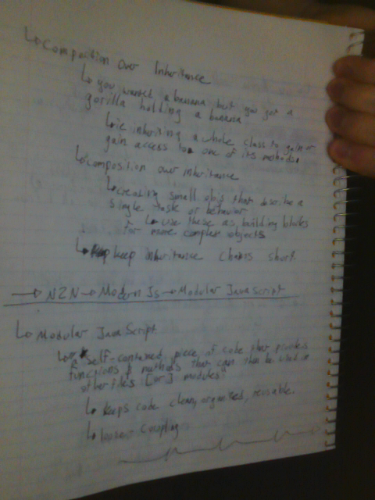 ↳ Composition Over Inheritance
↳ you wanted a banana but you got a
gorilla holding a banana
↳ ie inheriting a whole class to gain
gain access to one of its methods
↳ composition over inheritance
↳ creating small objs that describe a
single task or behavior
↳ use these as building blocks
for more complex objects
↳ keep inheritance chains short
→ NZN → Modern Js → Modular JavaScript
↳ Modular JavaScript
↳ Self-contained piece of code that provides
functions & methods that can then be used in
other files [or] modules
↳ keeps code clean, organised, reusable.
↳ looser coupling